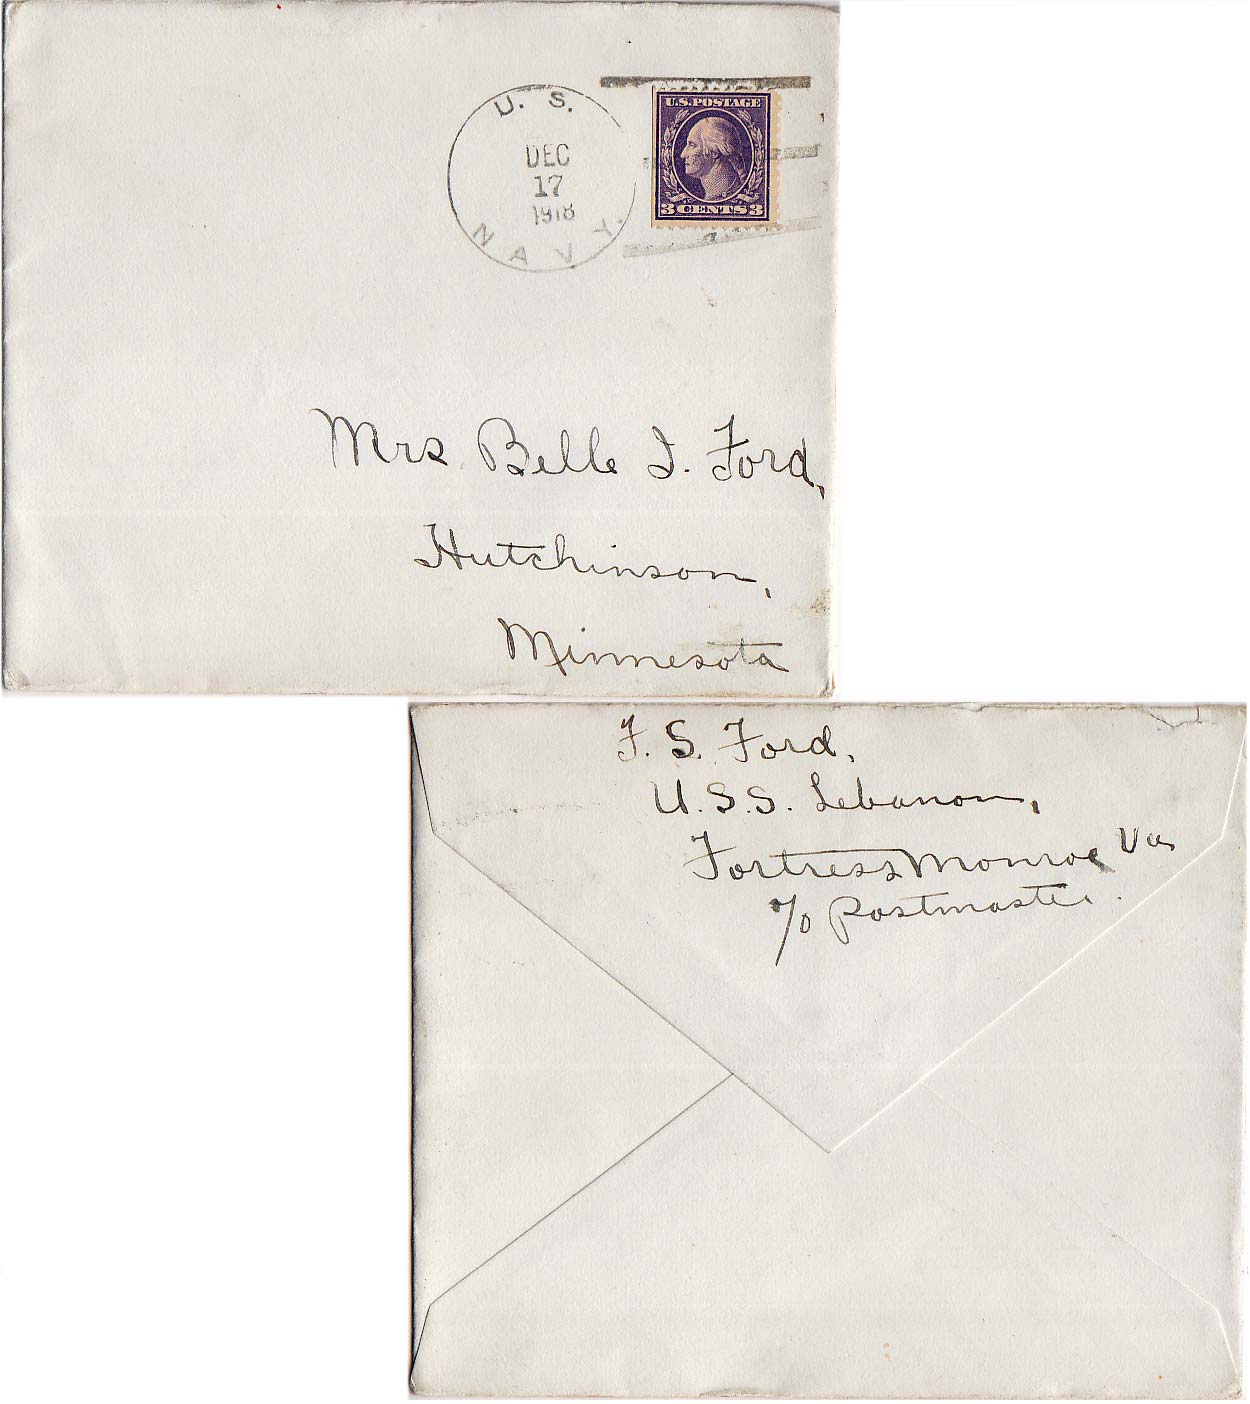 U. S.
DEC
17
1918
NAVY.
U.S. POSTAGE
3 CENTS 3
Mrs Belle I. Ford,
Hutchinson,
Minnesota
F. S. Ford,
U.S.S. Lebanon,
Fortress Monroe Va
c/o Postmaster.